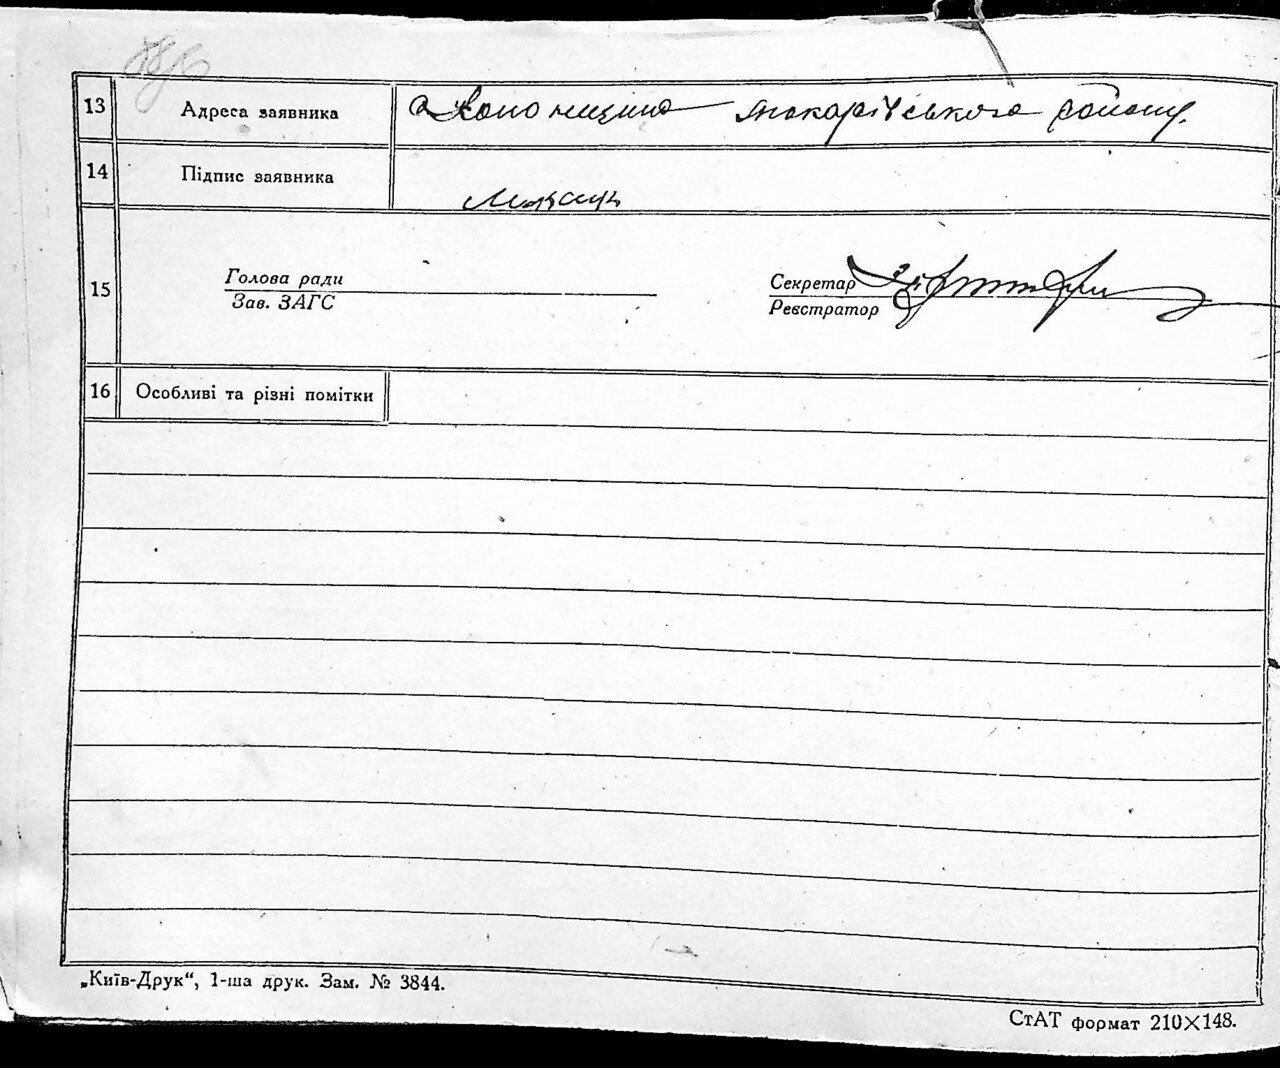 13 Адреса заявника с Копонищина макарівського району.
14 Підпис заявника
15 Голова ради
Зав. ЗАГС
Секретар
Реєстратор
16 Особливі та різні помітки
„Київ-Друк“, 1-ша друк. Зам. № 3844.
СтАТ формат 210×148.